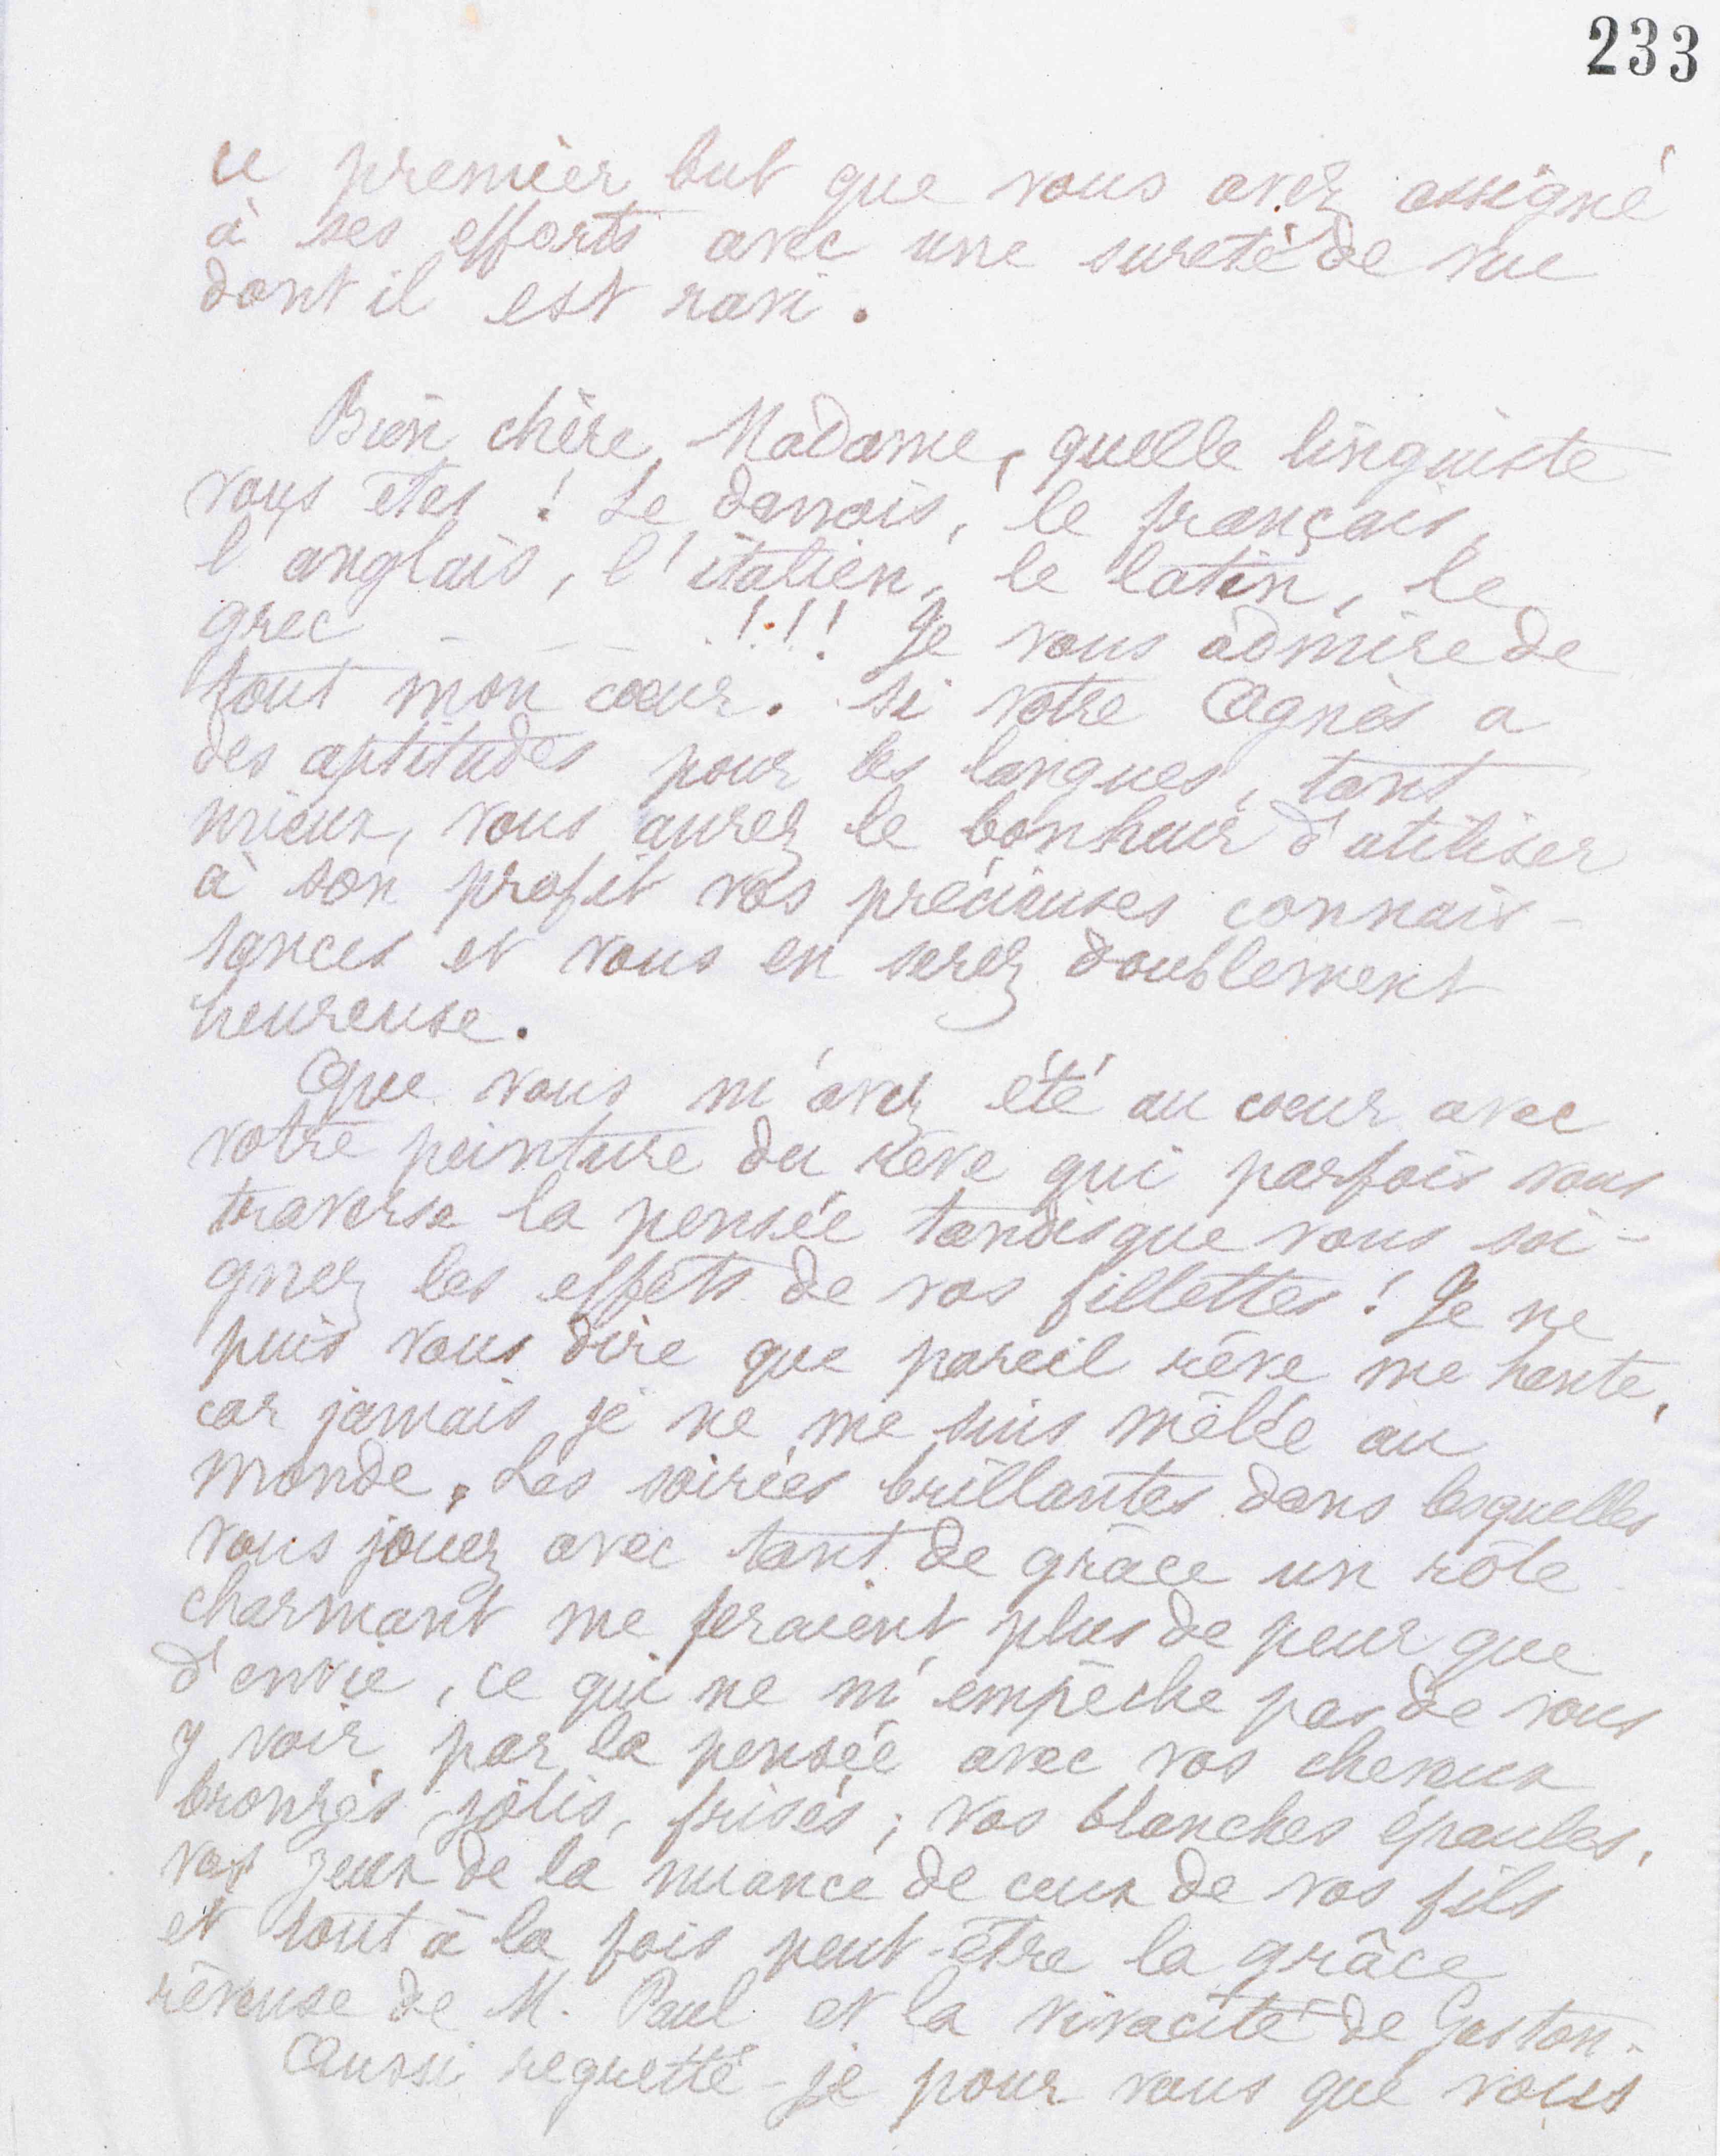 233
ce premier but que vous avez assigné
à ses efforts avec une sureté de vue
dont il est ravi.
Bien chère Madame, quelle linguiste
vous êtes ! Le danois, le français,
l'anglais, l'italien, le latin, le
grec _ _ _ _ . !!! Je vous admire de
tout mon cœur. Si votre Agnès a
des aptitudes pour les langues, tant
mieux, vous aurez le bonheur d'utiliser
à son profit vos précieuses connais-
sances et vous en serez doublement
heureuse.
Que vous m'avez été au cœur avec
votre peinture du rêve qui parfois vous
traverse la pensée tandisque vous soi-
gnez les effets de vos fillettes ! Je ne
puis vous dire que pareil rêve me hante,
car jamais je ne me suis mêlée au
monde. Les soirées brillantes dans lesquelles
vous jouez avec tant de grâce un rôle
charmant me feraient plus de peur que
d'envie, ce qui ne m'empêche pas de vous
y voir par la pensée avec vos cheveux
bronzés jolis, frisés ; vos blanches épaules,
vos yeux de la nuance de ceux de vos fils
et tout à la fois peut-être la grâce
rêveuse de M. Paul et la vivacité de Gaston.
Aussi regretté-je pour vous que vous